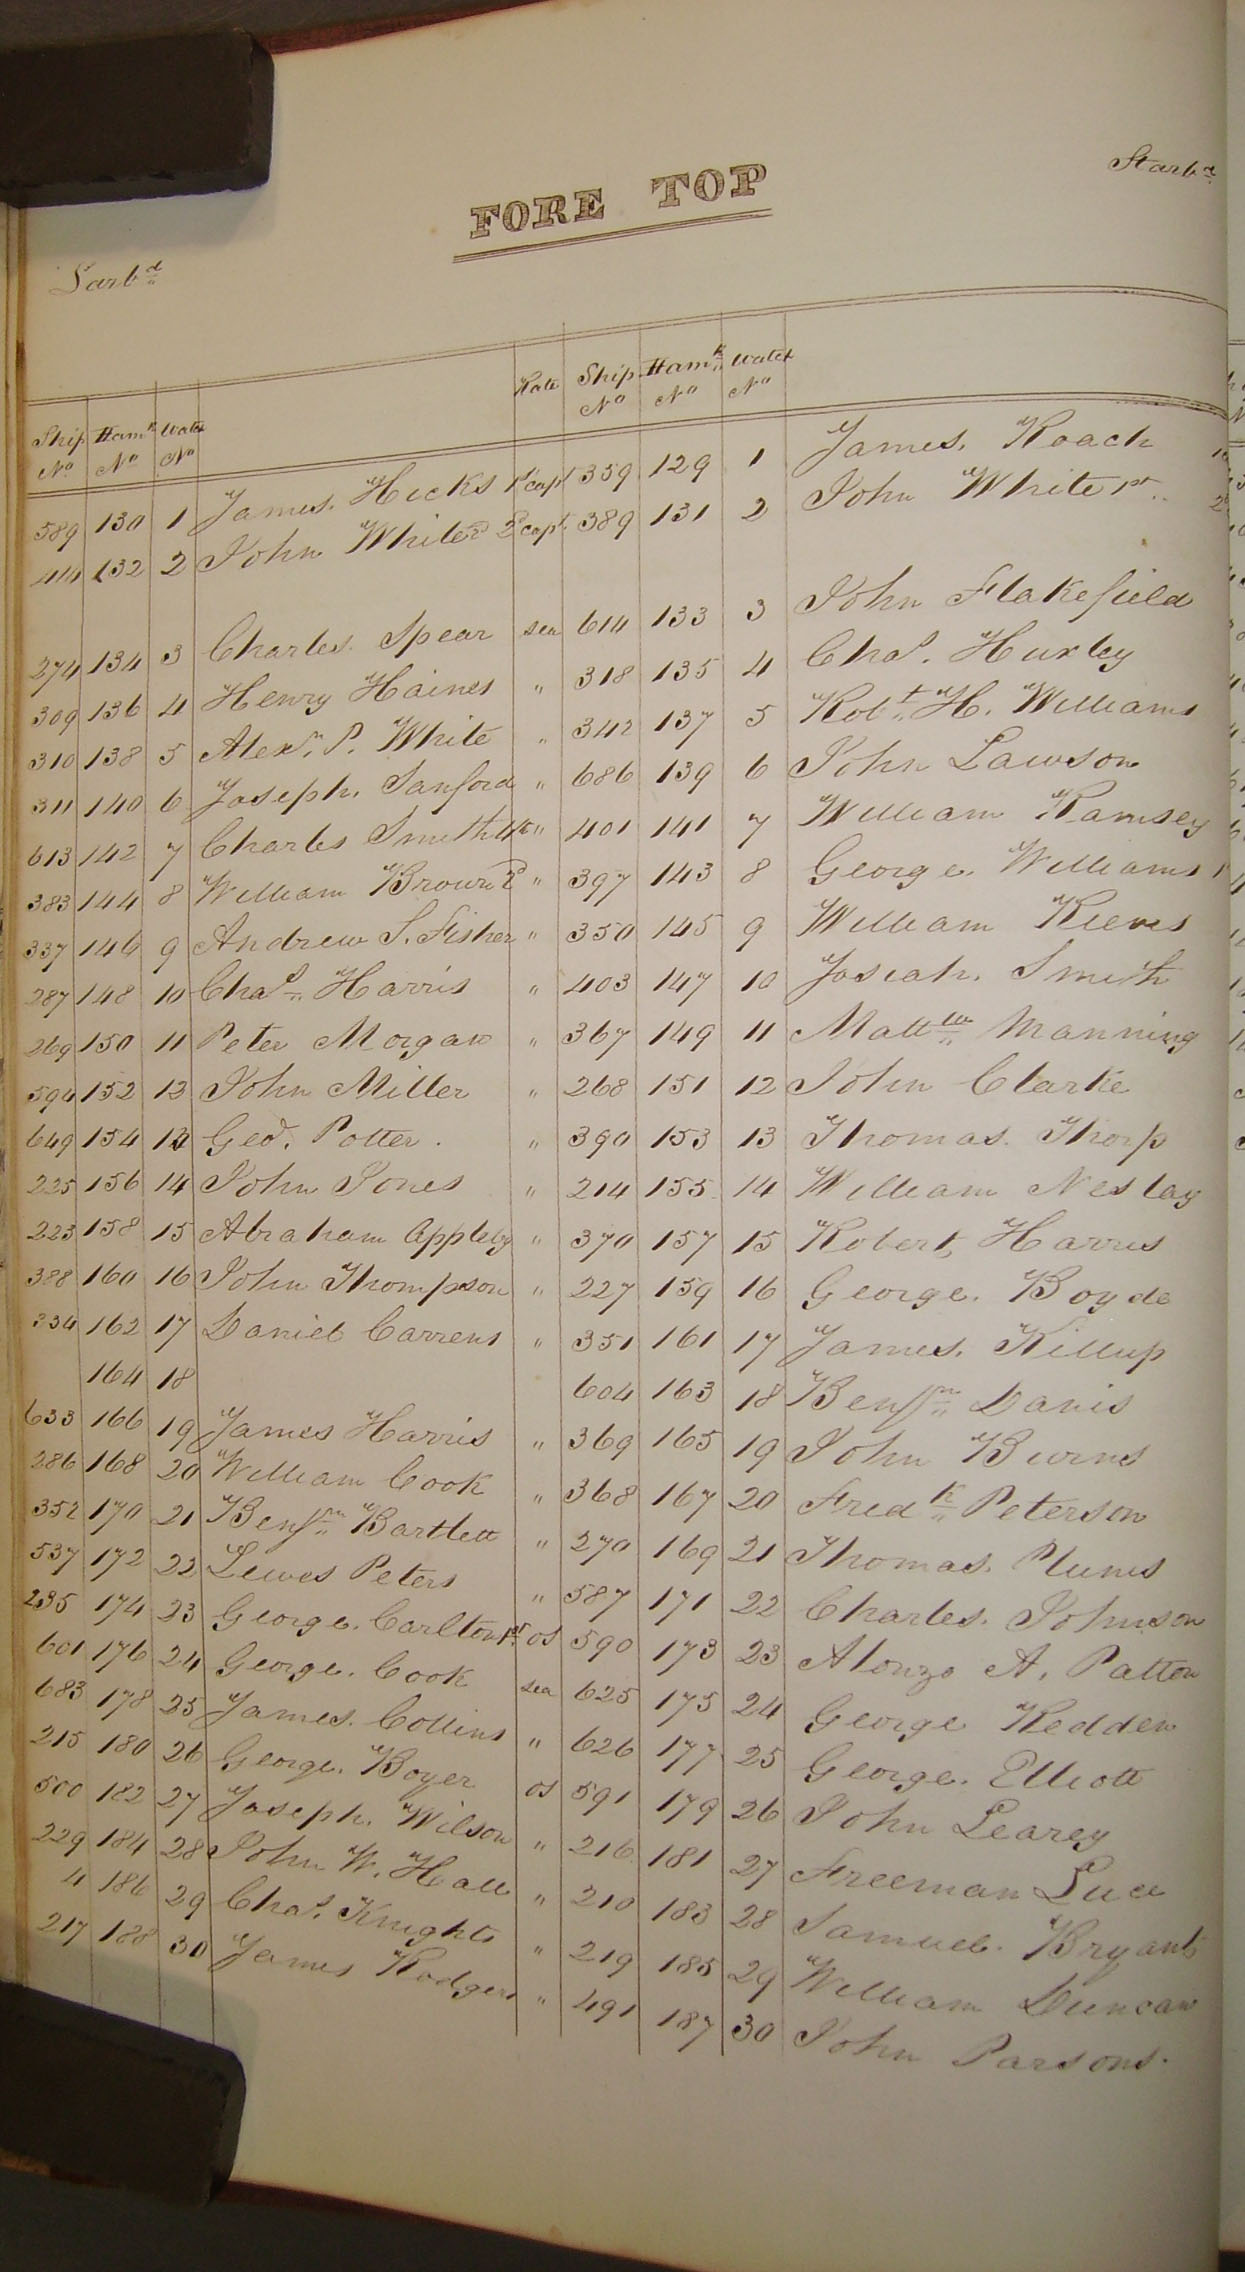 Starbd
FORE TOP
Larbd
Ship No Hamk No Watch No Rate Ship No Hamk No Watch No
589 130 1 James Hicks 1st capt 359 129 1 James Roach
414 132 2 John White 2d 2d capt 389 131 2 John White 1st
274 134 3 Charles Spear sea 614 133 3 John Flakefield
309 136 4 Henry Haines " 318 135 4 Chas. Huxley
310 138 5 Alexr P. White " 342 137 5 Robt H. Williams
311 140 6 Joseph Sanford " 686 139 6 John Lawson
613 142 7 Charles Smith 4th " 401 141 7 William Ramsey
383 144 8 William Brown 2d " 397 143 8 George Williams
337 146 9 Andrew S. Fisher " 350 145 9 William Reeves
287 148 10 Chas Harris " 403 147 10 Josiah Smith
269 150 11 Peter Morgan " 367 149 11 Mattw Manning
594 152 12 John Miller " 268 151 12 John Clarke
649 154 13 Geo. Potter. " 390 153 13 Thomas Thorp
225 156 14 John Jones " 214 155 14 William Neslay
223 158 15 Abraham Appleby " 370 157 15 Robert Harris
388 160 16 John Thompson " 227 159 16 George Boyde
334 162 17 Daniel Carrens " 351 161 17 James Killup
164 18 604 163 18 Benjn Davis
633 166 19 James Harris " 369 165 19 John Burns
286 168 20 William Cook " 368 167 20 Fredk Peterson
352 170 21 Benjn Bartlett " 270 169 21 Thomas Plums
537 172 22 Lewes Peters " 587 171 22 Charles Johnson
235 174 23 George Carlton 1st os 590 173 23 Alonzo A. Patton
601 176 24 George Cook sea 625 175 24 George Redden
683 178 25 James Collins " 626 177 25 George Elliott
215 180 26 George Boyer os 591 179 26 John Learey
500 182 27 Joseph Wilson " 216 181 27 Freeman Luce
229 184 28 John W. Hall " 210 183 28 Samuel Bryant
4 186 29 Chas. Knights " 219 185 29 William Duncan
217 188 30 James Rodgers " 491 187 30 John Parsons.